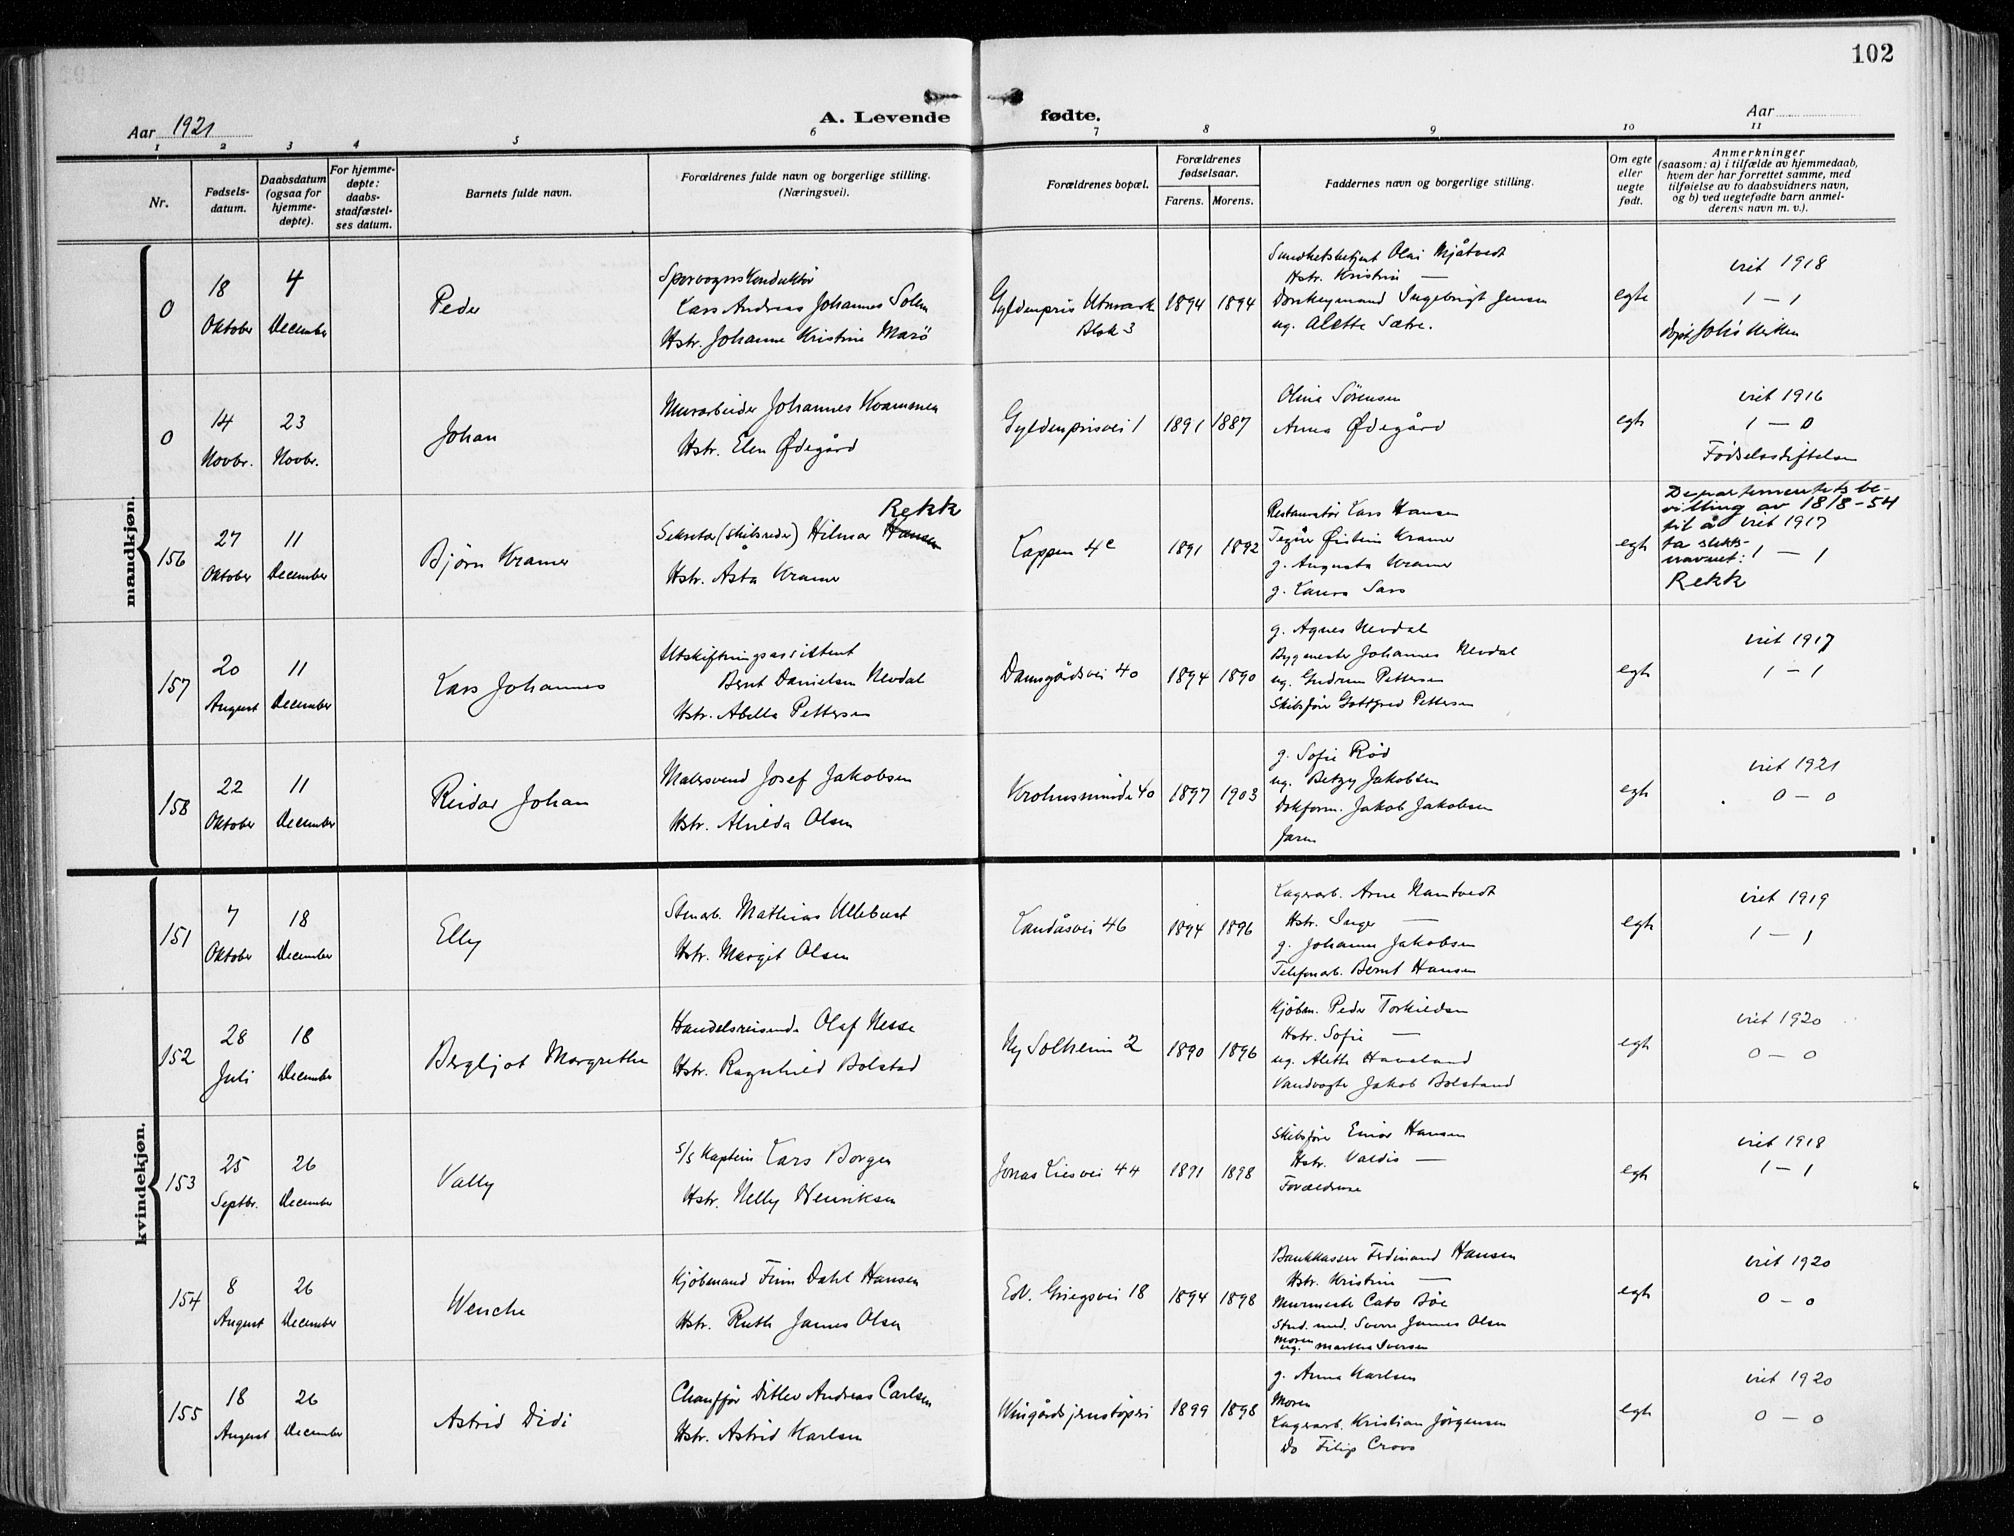 102
Aar 1921
A. Levende fødte.
Aar
1 2 3 4 5 6 7 8 9 10 11
Nr.
Fødsels-
datum.
Daabsdatum
(ogsaa for
hjemme-
døpte).
For hjemme-
døpte:
daabs-
stadfæstel-
ses datum.
Barnets fulde navn.
Forældrenes fulde navn og borgerlige stilling.
(Næringsvei).
Forældrenes bopæl.
Forældrenes
fødselsaar.
Farens. Morens.
Faddernes navn og borgerlige stilling.
Om egte
eller
uegte
født.
Anmerkninger
(saasom: a) i tilfælde av hjemmedaab,
hvem der har forrettet samme, med
tilføielse av to daabsvidners navn,
og b) ved uegtefødte barn anmel-
derens navn m. v.).
mandkjøn.
0
18
Oktober
4
December
Peder
Sporvognskonduktør
Lars Andreas Johannes Solem
Hstr. Johanne Kristine Marø
Gyldenpris
Blok 3
1894 1894
Olai Mjåtvedt
Hstr. Kristine —
Donkeymand Ingebrigt Jensen
ug. Alette Sætre.
egte
viet 1918
1 — 1
0
14
Novbr.
23
Novbr.
Johan
Murarbeider Johannes Kvammen
Hstr. Elen Ødegård
Gyldenprisvei 1
1891 1887
Olina Sørensen
Anna Ødegård
egte
viet 1916
1 — 0
Fødselsstiftelsen
156
27
Oktober
11
December
Bjørn Kramer
Rekk
Sekretær (skibsreder) Hilmar Hansen
Hstr. Asta Kramer
Lappen 4c
1891 1892
Restauratør Lars Hansen
Kramer
g. Augusta Kramer
g. Laura Sars
egte
Departementets be-
villing av 18/8-54
til å viet 1917
ta slekts-
navnet: 1 — 1
Rekk
157
20
August
11
December
Lars Johannes
Utskiftningsassistent
Bernt Danielsen Nevdal
Hstr. Abella Pettersen
Damsgårdsvei 40
1894 1890
g. Agnes Nevdal
Bygmester Johannes Nevdal
ug. Gudrun Pettersen
Skibsfører Gottfred Pettersen
egte
viet 1917
1 — 1
158
22
Oktober
11
December
Reidar Johan
Malersvend Josef Jakobsen
Hstr. Alvilda Olsen
Krohnsminde 40
1897 1903
g. Sofie Rød
ug. Betzy Jakobsen
Dokform. Jakob Jakobsen
Faren
egte
viet 1921
0 — 0
kvindekjøn.
151
7
Oktober
18
December
Elly
Stenarb. Mathias Ullebust
Hstr. Margit Olsen
Landåsvei 46
1894 1896
Lagerarb. Arne Namtvedt
Hstr. Inger —
g. Johanna Jakobsen
Telefonarb. Bernt Hansen
egte
viet 1919
1 — 1
152
28
Juli
18
December
Bergljot Margrethe
Handelsreisende Olaf Nesse
Hstr. Ragnhild Bolstad
Ny Solheim 2
1890 1896
Kjøbm. Peder Torkildsen
Hstr. Sofie —
ug. Alette Haveland
Vandvogter Jakob Bolstad
egte
viet 1920
0 — 0
153
25
Septbr.
26
December
Vally
S/S Kaptein Lars Borgen
Hstr. Nelly Henriksen
Jonas Liesvei 44
1891 1898
Skibsfører Einar Hansen
Hstr. Valdis —
Forældrene
egte
viet 1918
1 — 1
154
8
August
26
December
Wenche
Kjøbmand Finn Dahl Hansen
Hstr. Ruth James Olsen
Edv. Griegsvei 18
1894 1898
Bankkasserer Ferdinand Hansen
Hstr. Kristine —
Murmester Cato Bøe
Stud. med. Sverre James Olsen
Moren
ug. Martha Iversen
egte
viet 1920
0 — 0
155
18
August
26
December
Astrid Didi
Chauffør Ditlev Andreas Carlsen
Hstr. Astrid Karlsen
1899 1898
g. Anna Karlsen
Moren
Lagerarb. Kristian Jørgensen
Do Filip Croos
egte
viet 1920
0 — 0